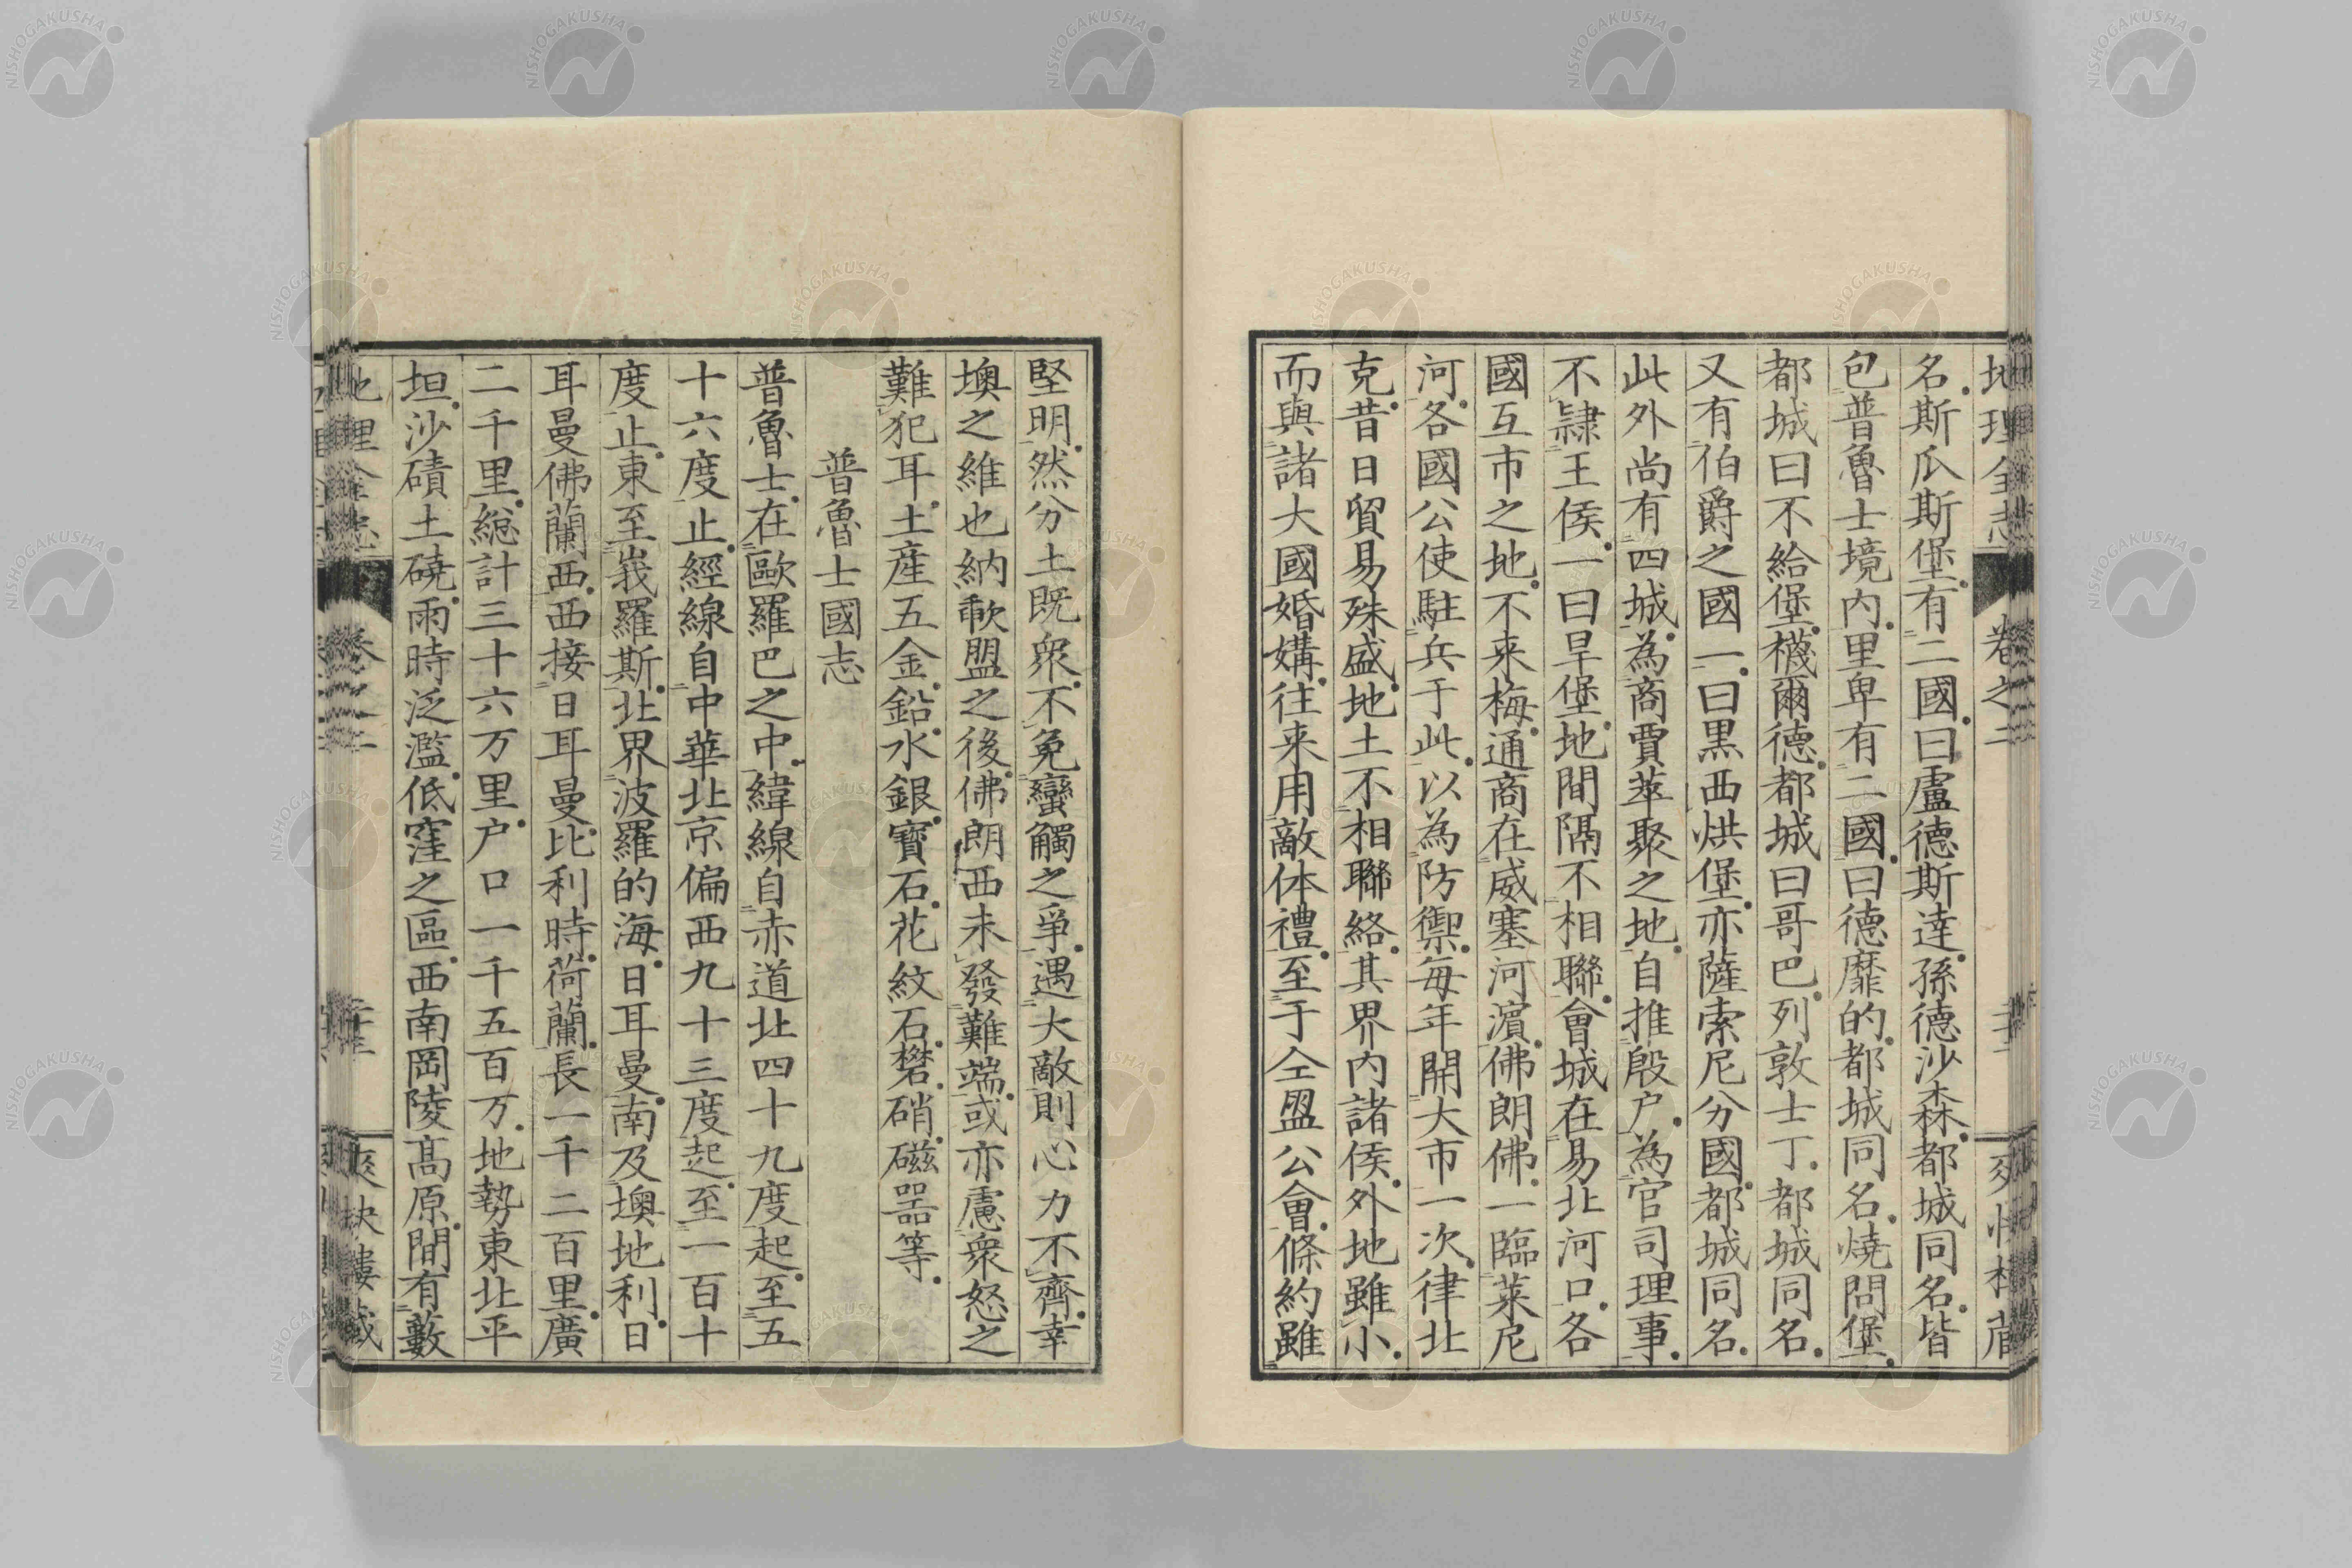 地理全志 卷之二
名斯瓜斯堡有二國曰盧德斯達孫德沙森都城同名皆
包普魯士境内里卑有二國曰德靡的都城同名燒問堡
都城曰不給堡襪爾德都城曰哥巴列敦士丁都城同名
又有伯爵之國一曰黒西烘堡亦薩索尼分國都城同名
此外尚有四城為商賈萃聚之地自推殷户為官司理事
不隷王侯一曰旱堡地間隔不相聯會城在易北河口各
國互市之地不来梅通商在威塞河濵佛朗佛一臨莱尼
河各國公使駐兵于此以為防禦每年開大市一次律北
克昔日貿易殊盛地土不相聯絡其界内諸侯外地雖小
而與諸大國婚媾往来用敵体禮至于仝盟公會條約雖
堅明然分土既衆不免蠻觸之爭遇大敵則心力不齊幸
墺之維也納歃盟之後佛朗西未發難端或亦慮衆怒之
難犯耳土産五金鉛水銀寳石花紋石礬硝磁噐等
普魯士國志
普魯士在歐羅巴之中緯線自赤道北四十九度起至五
十六度止經線自中華北京偏西九十三度起至一百十
度止東至峩羅斯北界波羅的海日耳曼南及墺地利日
耳曼佛蘭西西接日耳曼比利時荷蘭長一千二百里廣
二千里總計三十六万里户口一千五百万地勢東北平
坦沙磧土磽雨時泛濫低窪之區西南岡陵髙原間有藪
地理全志 卷之二 爽快樓藏